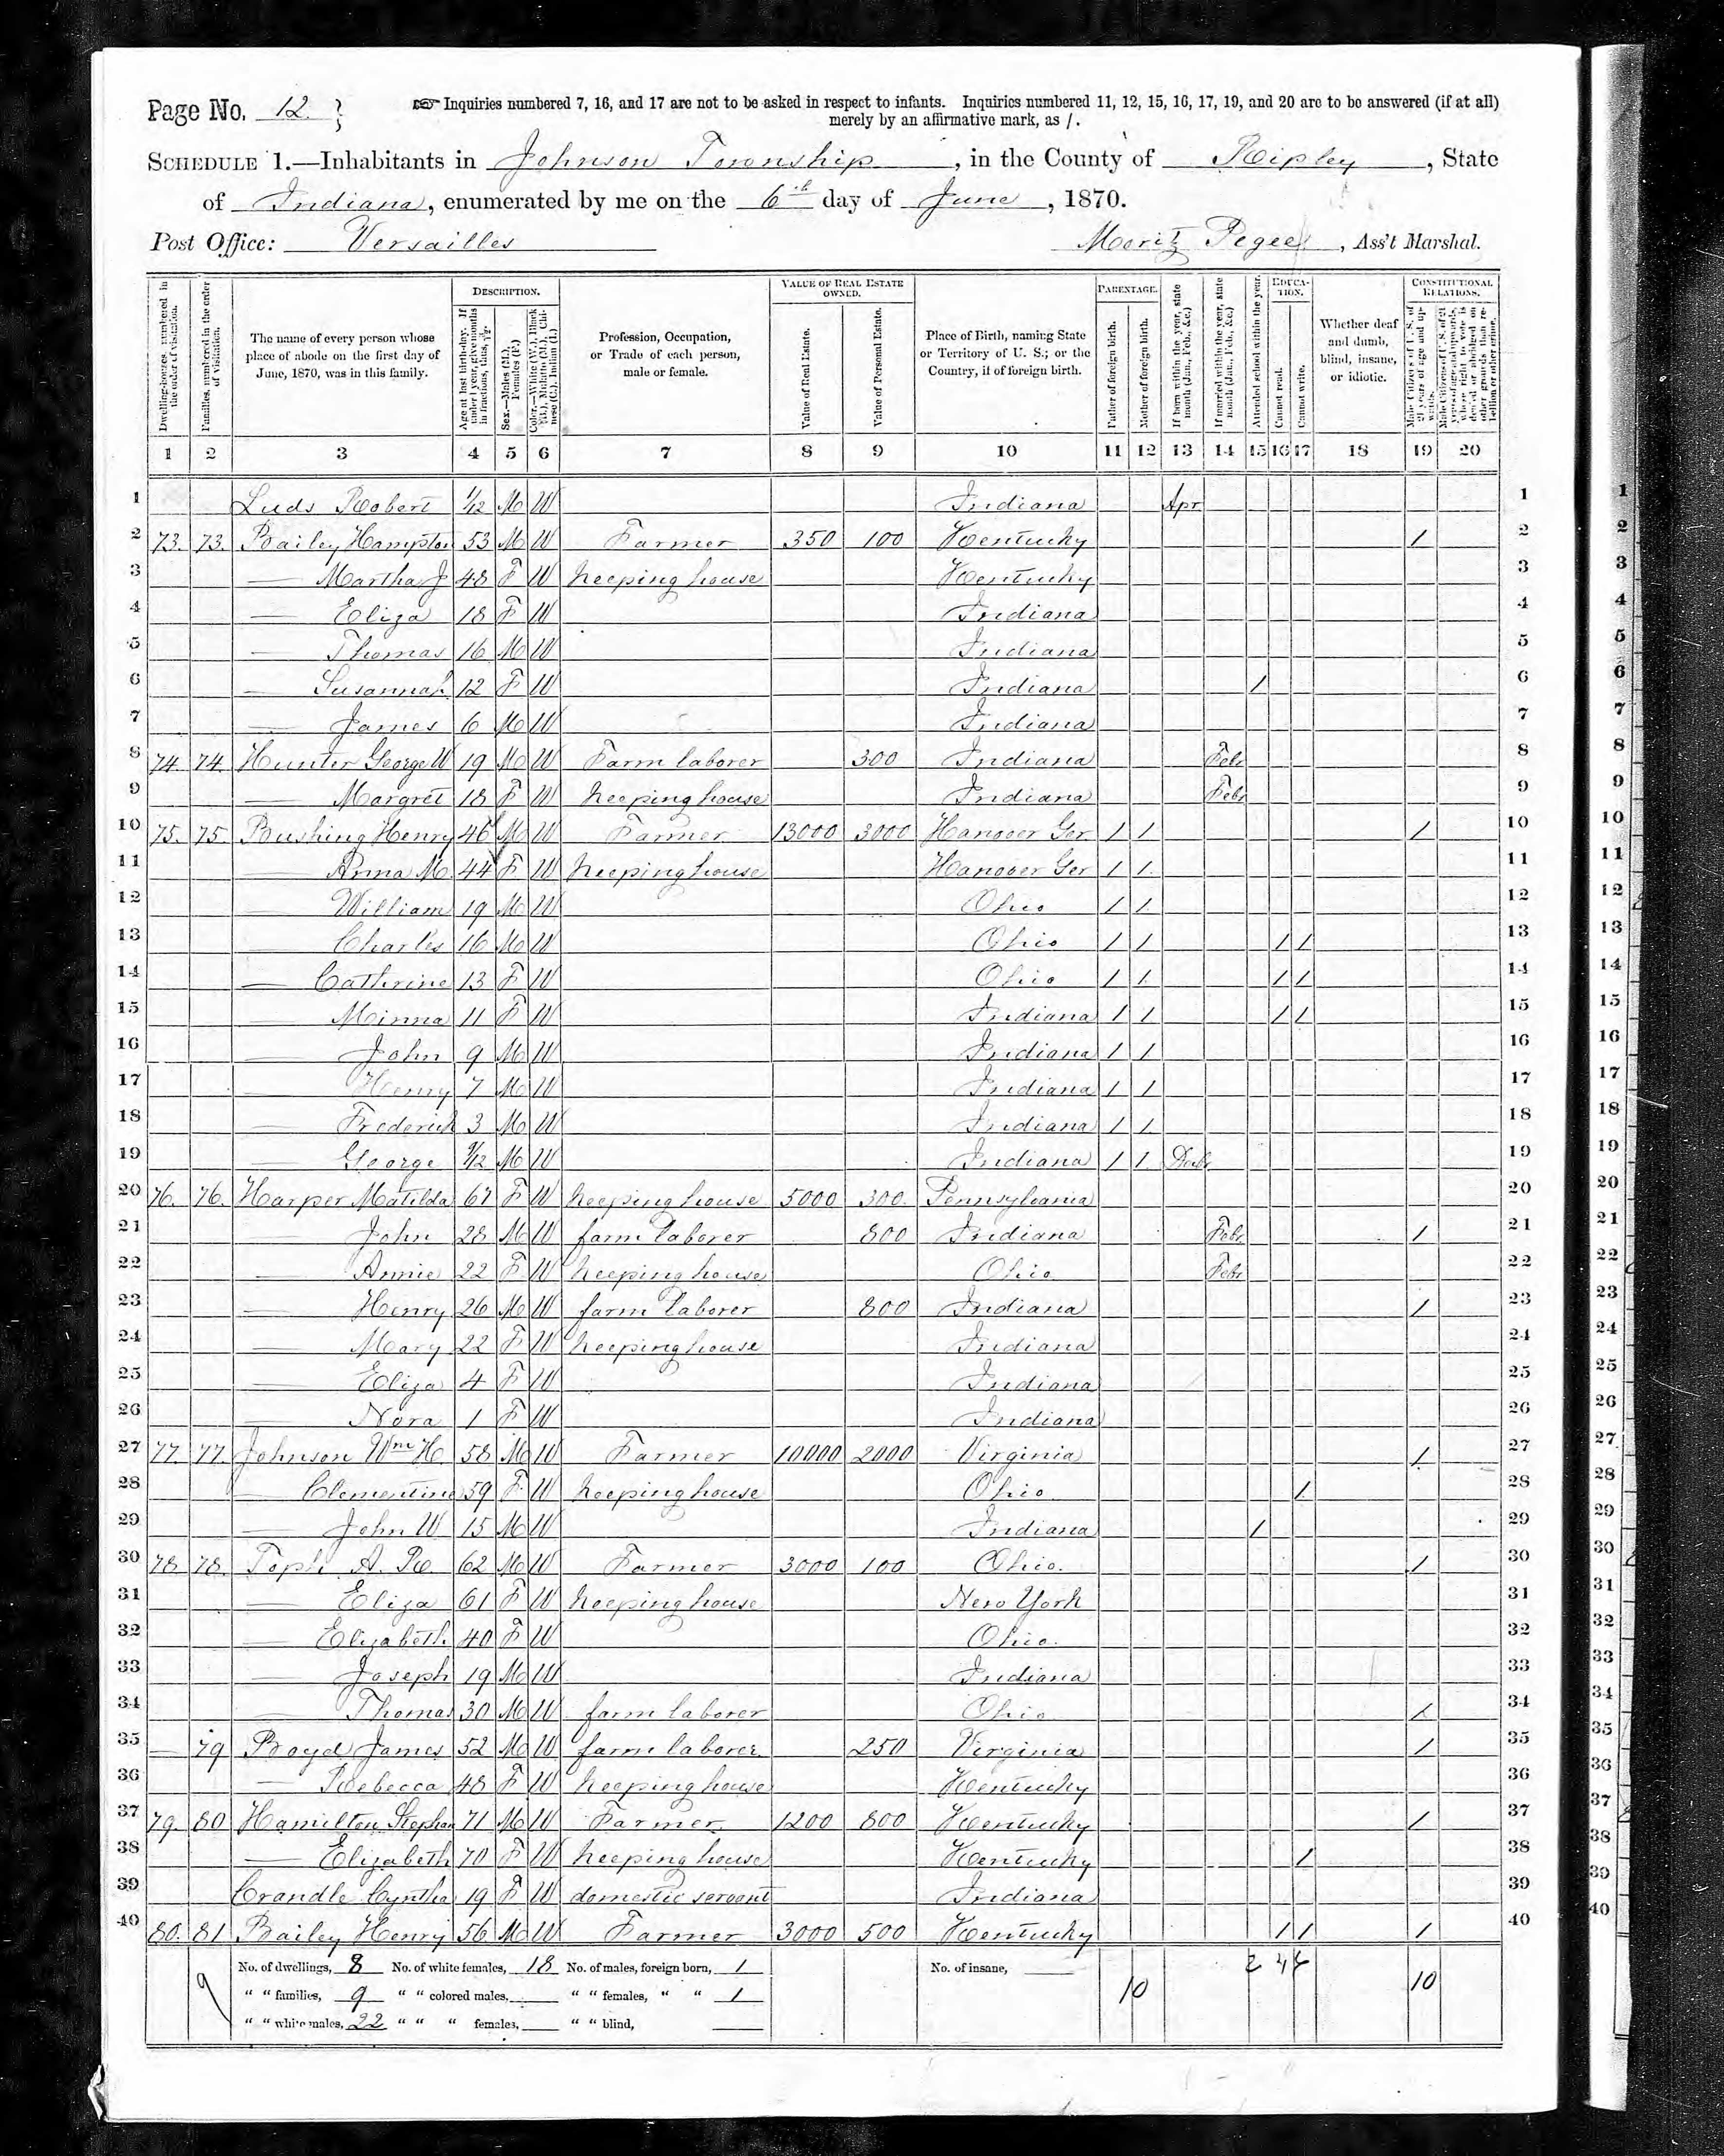 Page No. 12.
Inquiries numbered 7, 16, and 17 are not to be asked in respect to infants. Inquiries numbered 11, 12, 15, 16, 17, 19, and 20 are to be answered (if at all)
merely by an affirmative mark, as /.
SCHEDULE 1.—Inhabitants in Johnson Township, in the County of Ripley, State
of Indiana, enumerated by me on the 6th day of June, 1870.
Post Office: Versailles
Moritz, Ass't Marshal.
DESCRIPTION. VALUE OF REAL ESTATE OWNED. PARENTAGE. EDUCATION. CONSTITUTIONAL RELATIONS.
Dwelling-houses, numbered in the order of visitation.
Families, numbered in the order of visitation.
The name of every person whose place of abode on the first day of June, 1870, was in this family.
Age at last birth-day. If under 1 year, give months in fractions, thus,
Sex.—Males (M.), Females (F.)
Color.—White (W.), Black (B.), Mulatto (M.), Chinese (C.), Indian (I.)
Profession, Occupation, or Trade of each person, male or female.
Value of Real Estate.
Value of Personal Estate.
Place of Birth, naming State or Territory of U. S.; or the Country, if of foreign birth.
Father of foreign birth.
Mother of foreign birth.
If born within the year, state month (Jan., Feb., &c.)
If married within the year, state month (Jan., Feb., &c.)
Attended school within the year.
Cannot read.
Cannot write.
Whether deaf and dumb, blind, insane, or idiotic.
Male Citizens of U. S. of 21 years of age and upwards.
Male Citizens of U. S. of 21 years of age and upwards, whose right to vote is denied or abridged on other grounds than rebellion or other crime.
1 2 3 4 5 6 7 8 9 10 11 12 13 14 15 16 17 18 19 20
1 Luds Robert 1/12 M W Indiana Apr 1 1
2 73. 73. Bailey Hampton 53 M W Farmer 350 100 Kentucky / 2 2
3 — Martha J 48 F W keeping house Kentucky 3 3
4 — Eliza 18 F W Indiana 4 4
5 — Thomas 16 M W Indiana 5 5
6 — Susannah 12 F W Indiana / 6 6
7 — James 6 M W Indiana 7 7
8 74. 74. Hunter George W 19 M W Farm laborer 300 Indiana Febr 8 8
9 — Margret 18 F W keeping house Indiana Febr 9 9
10 75. 75. Bushing Henry 46 M W Farmer 13000 3000 Hanover Ger / / / 10 10
11 — Anna M. 44 F W keeping house Hanover Ger / / 11 11
12 — William 19 M W Ohio / / 12 12
13 — Charles 16 M W Ohio / / / / 13 13
14 — Cathrine 13 F W Ohio / / / / 14 14
15 — Minna 11 F W Indiana / / / / 15 15
16 — John 9 M W Indiana / / 16 16
17 — Henry 7 M W Indiana / / 17 17
18 — Frederick 3 M W Indiana / / 18 18
19 — George 9/12 M W Indiana / / 19 19
20 76. 76. Harper Matilda 67 F W keeping house 5000 300. Pennsylvania 20 20
21 — John 28 M W farm laborer 800 Indiana Febr / 21 21
22 — Annie 22 F W keeping house Ohio Febr 22 22
23 — Henry 26 M W farm laborer 800 Indiana / 23 23
24 — Mary 22 F W keeping house Indiana 24 24
25 — Eliza 4 F W Indiana 25 25
26 — Nora 1 F W Indiana 26 26
27 77. 77. Johnson Wm H. 58 M W Farmer 10000 2000 Virginia / 27 27
28 — Clementine 59 F W keeping house Ohio / 28 28
29 — John W 15 M W Indiana / 29 29
30 78. 78. Toph A. R. 62 M W Farmer 3000 100 Ohio. / 30 30
31 — Eliza 61 F W keeping house New York 31 31
32 — Elizabeth 40 F W Ohio. 32 32
33 — Joseph 19 M W Indiana 33 33
34 — Thomas 30 M W farm laborer Ohio / 34 34
35 — 79 Boyd James 52 M W farm laborer 250 Virginia / 35 35
36 — Rebecca 48 F W keeping house Kentucky 36 36
37 79. 80 Hamilton Stephan 71 M W Farmer. 1200 800 Kentucky / 37 37
38 — Elizabeth 70 F W keeping house Kentucky / 38 38
39 Crandle Cyntha 19 F W domestic servant Indiana 39 39
40 80. 81 Bailey Henry 56 M W Farmer 3000 500 Kentucky / / / 40 40
No. of dwellings, 8 No. of white females, 18 No. of males, foreign born, 1 No. of insane,
9 " " families, 9 " " colored males, " " females, " " 1 10 2 4 6 10
" " white males, 22 " " " females, " " blind,